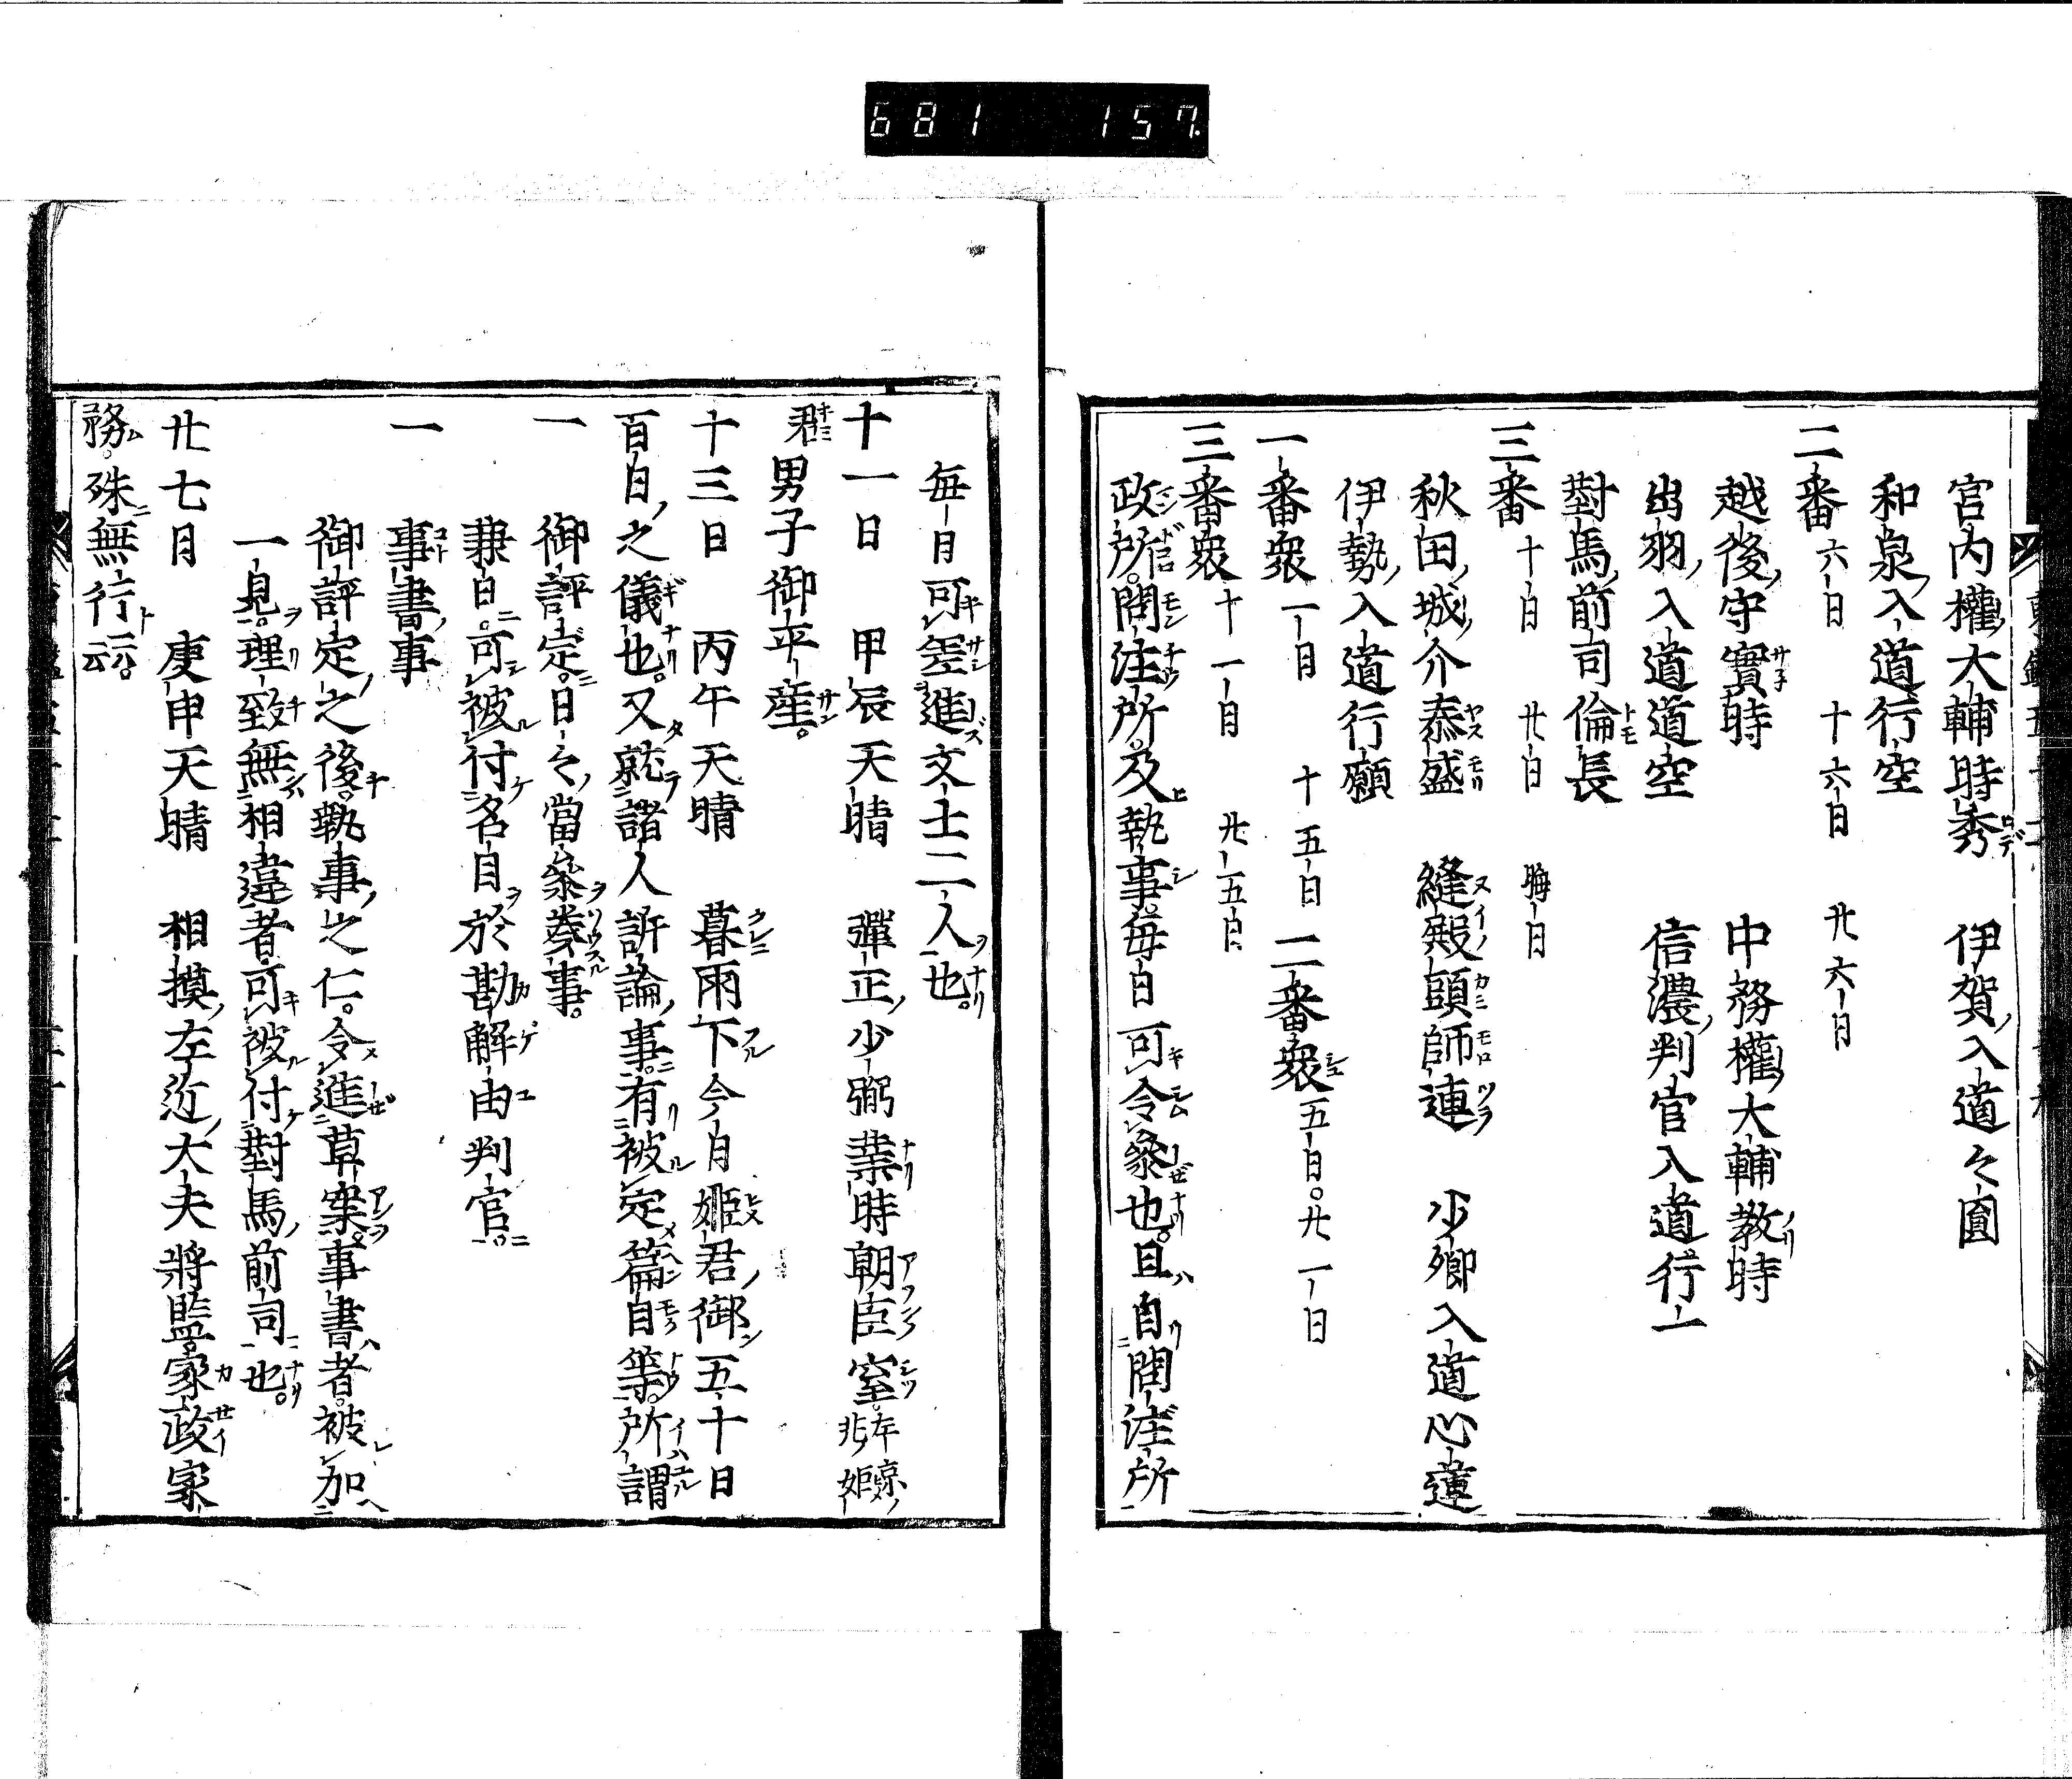 681 157
宮内權大輔時秀 伊賀入道々圓
和泉入道行空
二番 六日 十六日 廿六日
越後守實時 中務權大輔教時
出羽入道道空 信濃判官入道行一
對馬前司倫長
三番 十日 廿日 晦日
秋田城介泰盛 縫殿頭師連 少卿入道心蓮
伊勢入道行願
一番衆 一日 十五日 二番衆 五日。廿一日
三番衆 十一日 廿五日
政所。問注所。及執事。毎日可令參也。且自問注所
毎月可差進文士二人也。
十一日 甲辰天晴 彈正少弼業時朝臣室。左京兆姫
君男子御平産。
十三日 丙午天晴 暮雨下今日姫君御五十日
百日之儀也。又就諸人訴論事。有被定篇目等。所謂
一 御評定。日々當參奏事。
兼日。可被付名目於勘解由判官。
一 事書事
御評定之後。執事之仁。令進草案。事書者。被加
一見。理致無相違者。可被付對馬前司也。
廿七日 庚申天晴 相摸左近大夫將監家政家
務。殊無行云云。